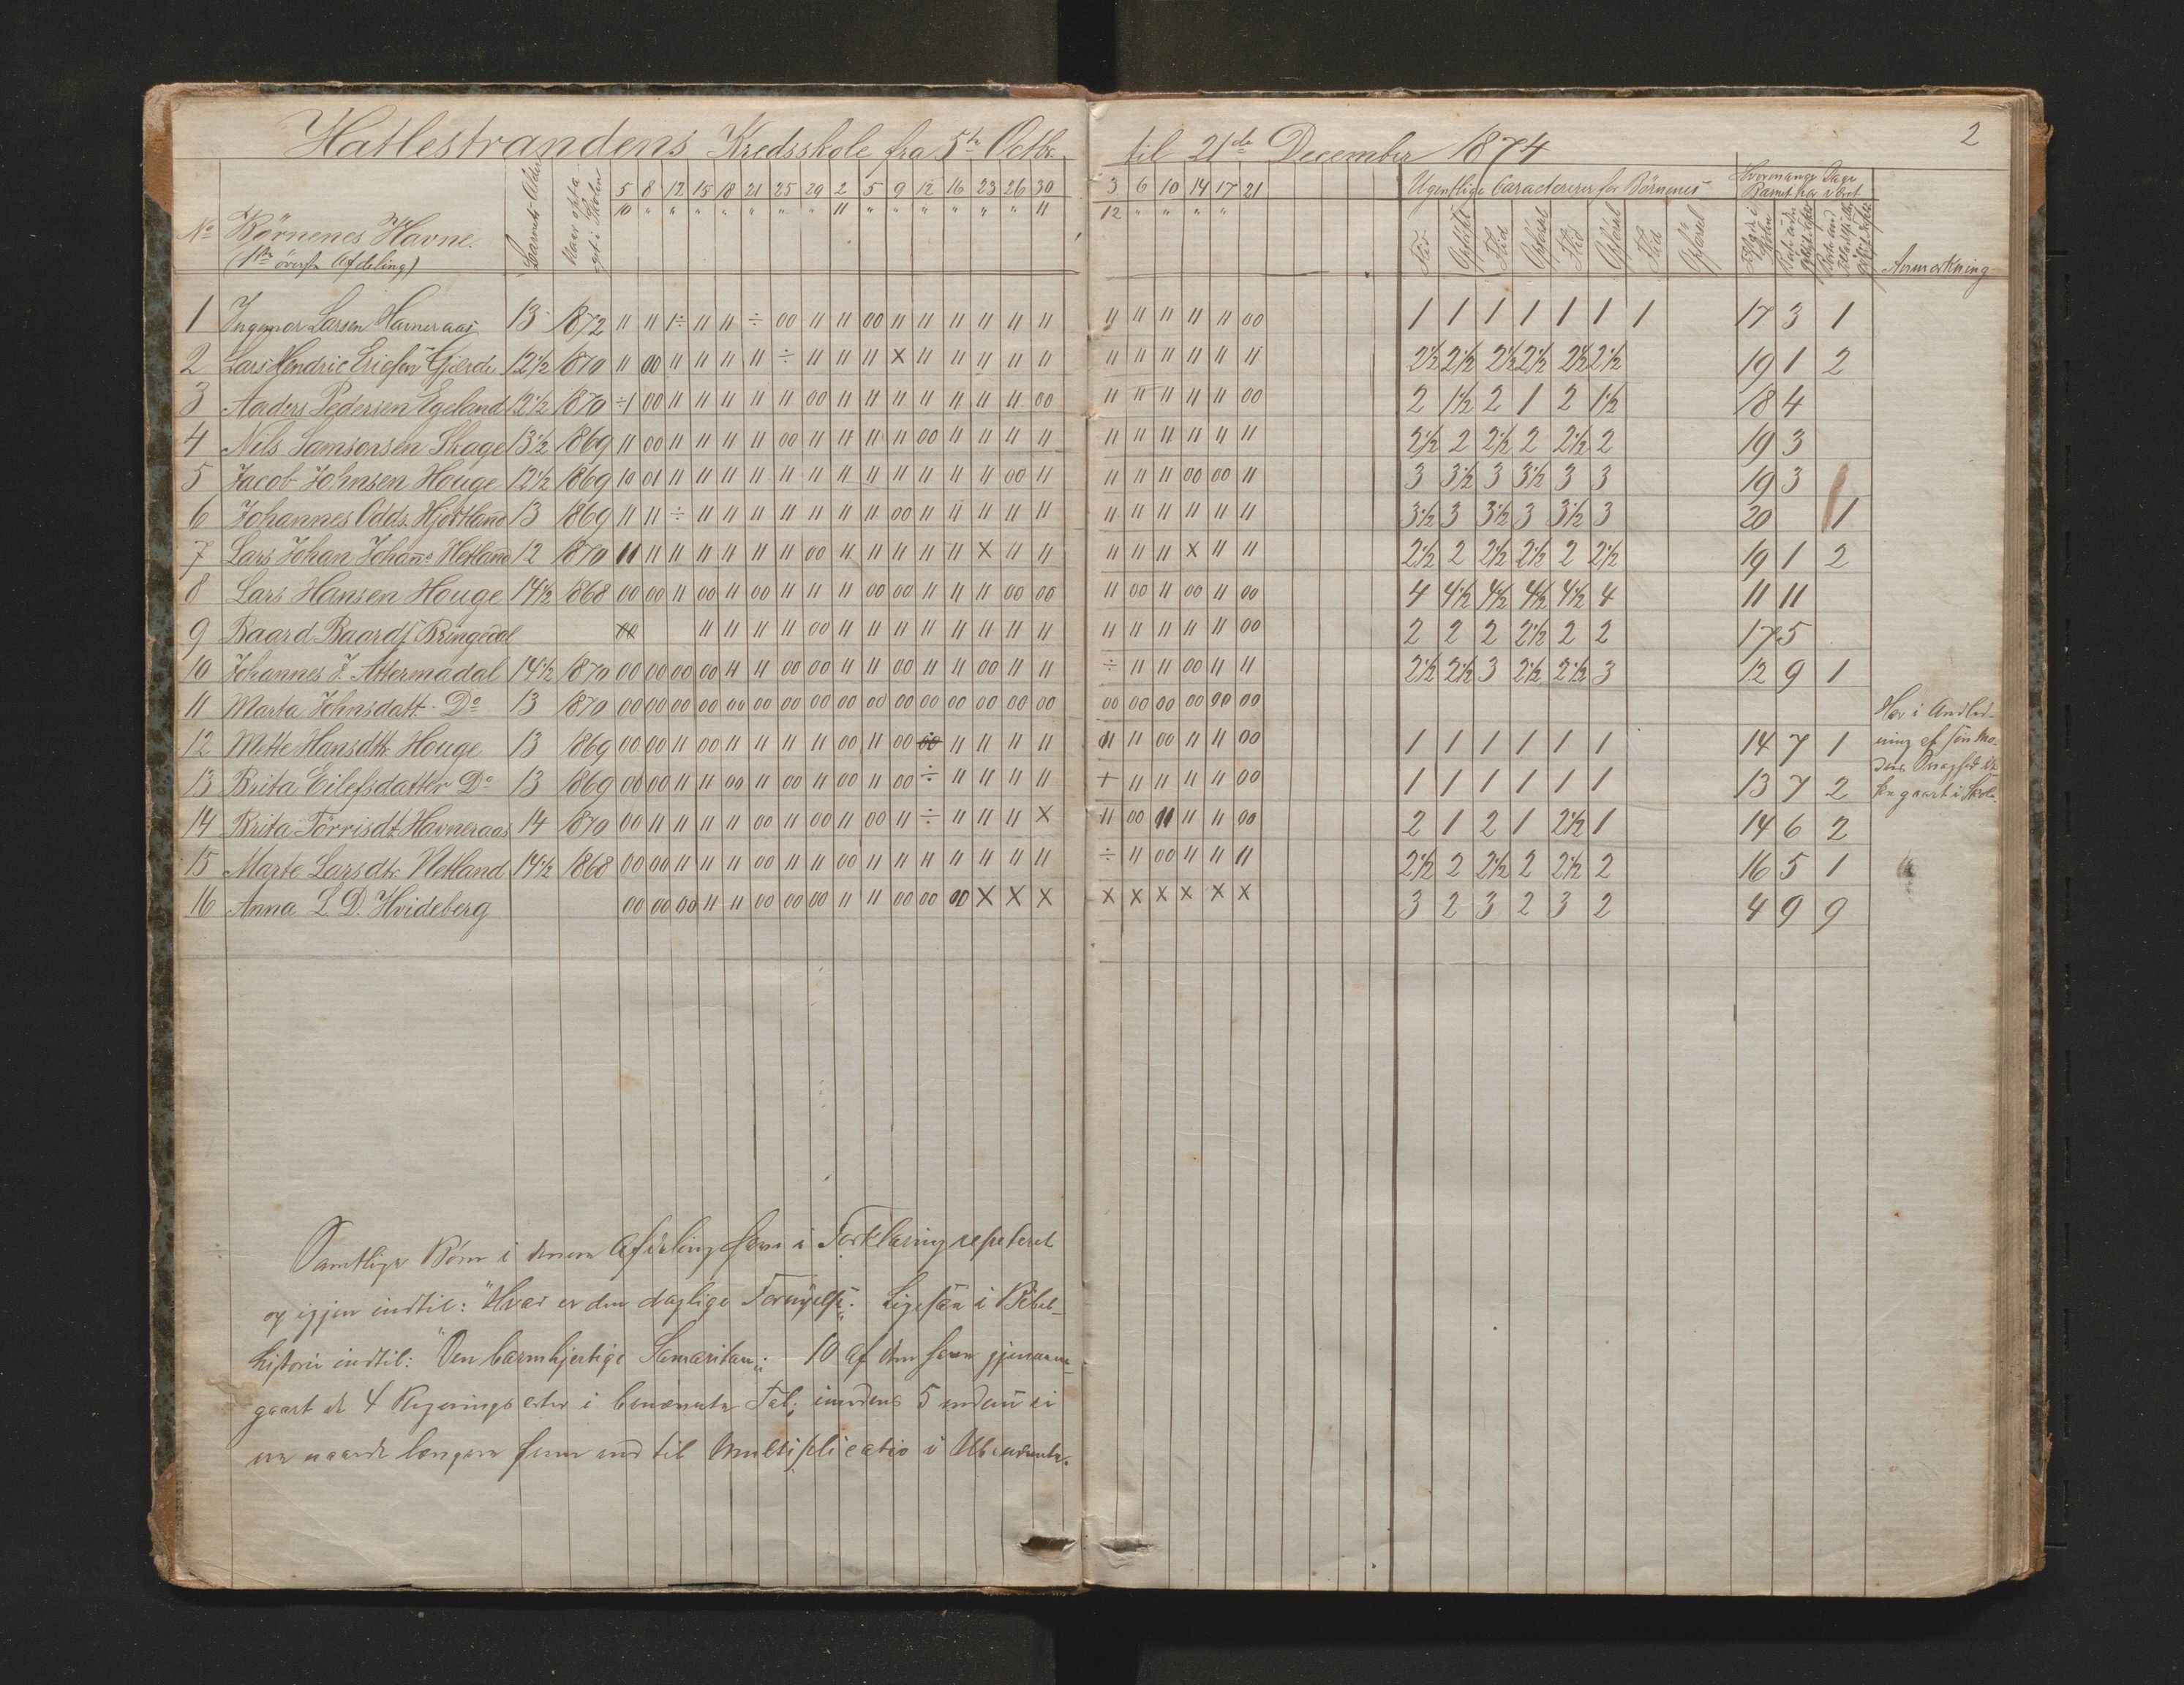 Hatlestrandens Kredsskole fra 5te Octbr. til 21de December 1874 2
No Börnenes Navne. Barnets Alder Naar optaget i Skolen 5 8 12 15 18 21 25 29 2 5 9 12 16 23 26 30 3 6 10 14 17 21 Ugentlige Caracterer for Börnenes Hvormange Dage Barnet har
(1ste överste Afdeling) 10 " " " " " " " 11 " " " " " " 11 12 " " " " Flid Opförsel Flid Opförsel Flid Opförsel Flid Opförsel Anmærkning
1 Ingemar Larsen Havneraas 13 1872 11 11 1÷ 11 11 ÷ 00 11 11 00 11 11 11 11 11 11 11 11 11 11 11 00 1 1 1 1 1 1 1 17 3 1
2 Lars Hendric Ericsen Gjerde 12½ 1870 11 00 11 11 11 11 ÷ 11 11 11 X 11 11 11 11 11 11 11 11 11 11 11 2½ 2½ 2½ 2½ 2½ 2½ 19 1 2
3 Anders Pedersen Egeland 12½ 1870 ÷1 00 11 11 11 11 11 00 11 11 11 11 11 11 11 00 11 11 11 11 11 00 2 1½ 2 1 2 1½ 18 4
4 Nils Samsonsen Skage 13½ 1869 11 00 11 11 11 11 00 11 11 11 11 00 11 11 11 11 11 11 11 11 11 11 2½ 2 2½ 2 2½ 2 19 3
5 Jacob Johnsen Houge 12½ 1869 10 01 11 11 11 11 11 11 11 11 11 11 11 11 00 11 11 11 11 00 00 11 3 3½ 3 3½ 3 3 19 3
6 Johannes Odds. Hjortland 13 1869 11 11 ÷ 11 11 11 11 11 11 11 00 11 11 11 11 11 11 11 11 11 11 11 3½ 3 3½ 3 3½ 3 20 1
7 Lars Johan Johans Netland 12 1870 11 11 11 11 11 11 11 00 11 11 11 11 11 X 11 11 11 11 11 X 11 11 2½ 2 2½ 2½ 2 2½ 19 1 2
8 Lars Hansen Houge 14½ 1868 00 00 11 00 11 00 11 11 11 00 00 11 11 11 00 00 11 00 11 00 11 00 4 4½ 4½ 4½ 4½ 4 11 11
9 Baard Baards Bringedal 00 11 11 11 11 00 11 11 11 11 11 11 11 11 11 11 11 11 11 00 2 2 2 2½ 2 2 17 5
10 Johannes J. Attermadal 14½ 1870 00 00 00 00 11 11 00 00 11 11 00 11 11 00 11 11 ÷ 11 11 00 11 11 2½ 2½ 3 2½ 2½ 3 12 9 1
11 Marta Johnsdatt. Do 13 1870 00 00 00 00 00 00 00 00 00 00 00 00 00 00 00 00 00 00 00 00 00 00 Har i Anled-
12 Mette Hansdtr. Houge 13 1869 00 00 11 00 11 11 11 11 00 11 00 00 11 11 11 11 11 11 00 11 11 00 1 1 1 1 1 1 14 7 1
13 Brita Eilefsdatter Do 13 1869 00 00 11 11 00 11 00 11 00 11 00 ÷ 11 11 11 11 + 11 11 11 11 00 1 1 1 1 1 1 13 7 2
14 Brita Törrisdt. Havneraas 14 1870 00 11 11 11 11 00 11 00 11 00 11 ÷ 11 11 11 X 11 00 11 11 11 00 2 1 2 1 2½ 1 14 6 2
15 Marte Larsdtr. Netland 14½ 1868 00 00 11 11 11 00 11 11 00 11 11 11 11 11 11 11 ÷ 11 00 11 11 11 2½ 2 2½ 2 2½ 2 16 5 1
16 Anna L. D. Hvideberg 00 00 00 11 11 00 00 00 11 11 00 00 00 X X X X X X X X X 3 2 3 2 3 2 4 9 9
Samtlige Börn i denne Afdeling have i Forklaring repeteret
og igjen indtil: "Hvad er den daglige Fornyelse". Ligesaa i Bibel-
historie indtil: "Den barmhjertige Samaritan"; 10 af dem have gjennem-
gaaet de 4 Regningsarter i benævnte Tal; imedens 5 endnu ei
ere naaede længere frem end til Multiplicatio i Ubenævnte.